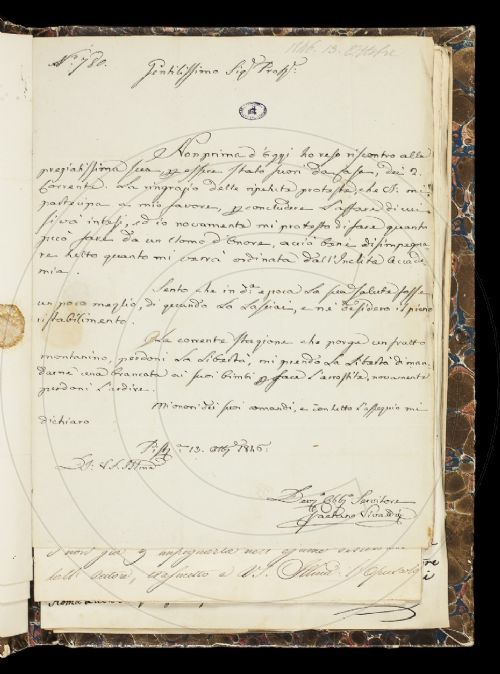 N.° 780.
1846. 13. Ottobre
Gentilissimo Sig.r Prof.r
Non prima d'Oggi ho reso riscontro alla
pregiatissima sua p essere stato fuori di Casa, dei 2.
Corrente. La ringrazio delle ripetute proteste, che Si
partecipa a mio favore, p concludere L'affare di cui
intesi, ed io novamente mi protesto di fare quanto
può fare da un Uomo d'Onore, acciò bene disimpegna
re tutto quanto mi verrà ordinata dall'Inclita Accade
mia.
Sento che in d.a epoca La sua Salute fosse
un poco meglio, di quando La Lasciai, e ne desidero il pieno
ristabilimento.
La corrente Stagione che porge un frutto
montanino, perdoni La Libertà, mi prendo La Libertà di man
darne una brancata ai suoi bimbi p fare L'arrostite, novamente
perdoni L'ardire.
Mi onori dei suoi comandi, e con tutto L'ossequio mi
dichiaro
13. 1846.
Di S. S. Ill.ma
Dev.o Obb.o Servitore
Gaetano